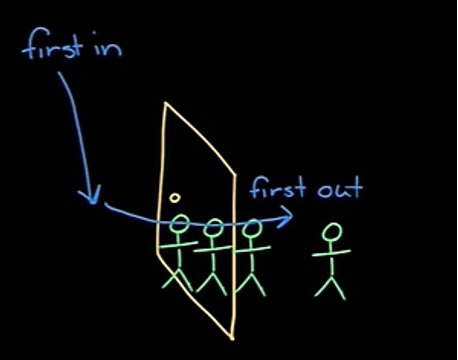 first in
first out